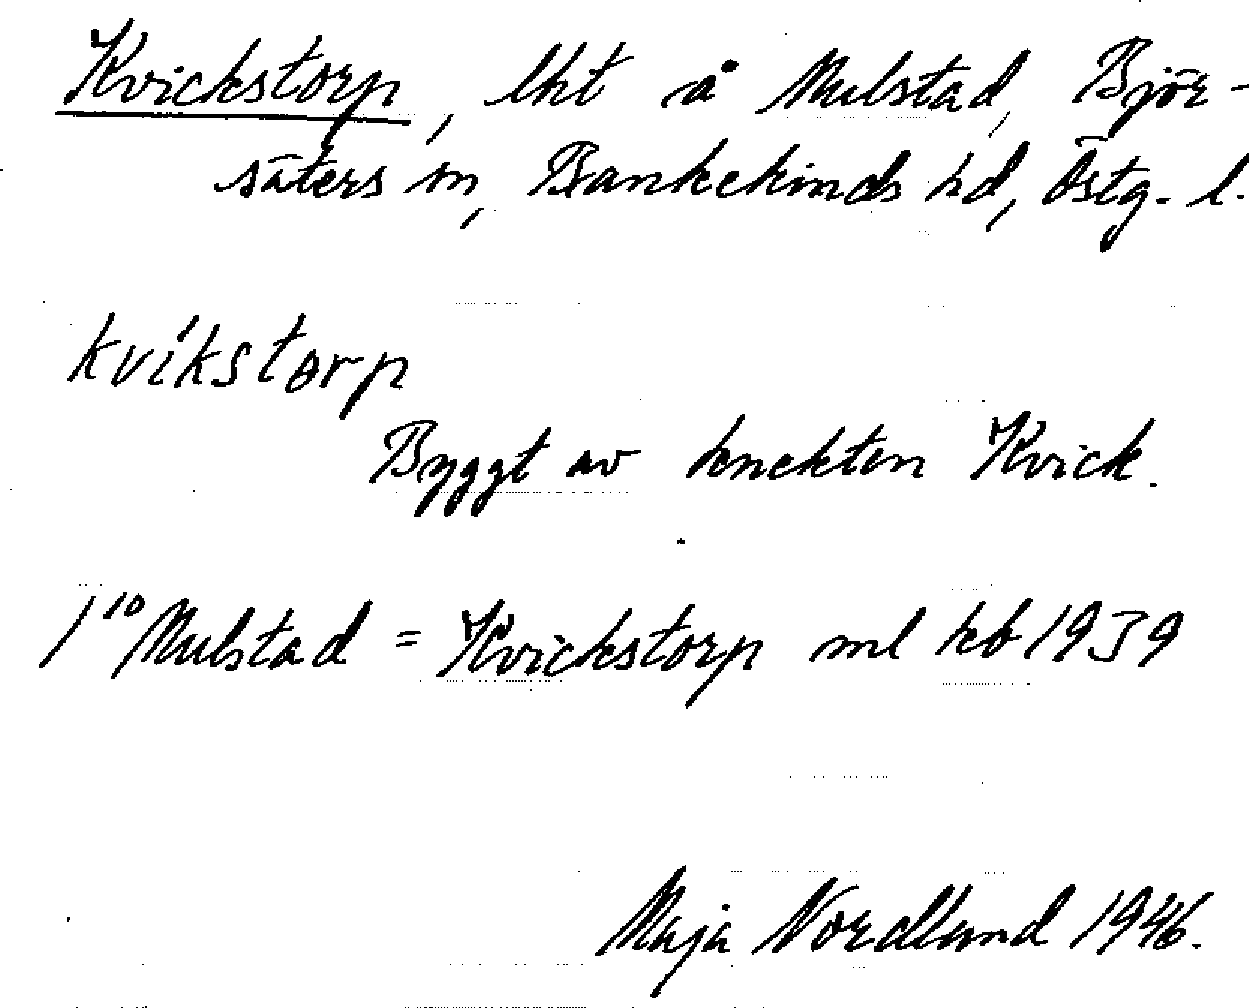 Kvickstorp, lht å Mulstad, Björ-
säters sn, Bankekinds hd, Östg. l.
kvíkstorp
Byggt av knekten Kvick.
1¹⁰ Mulstad = Kvickstorp ml kb 1939
Maja Nordlund 1946.